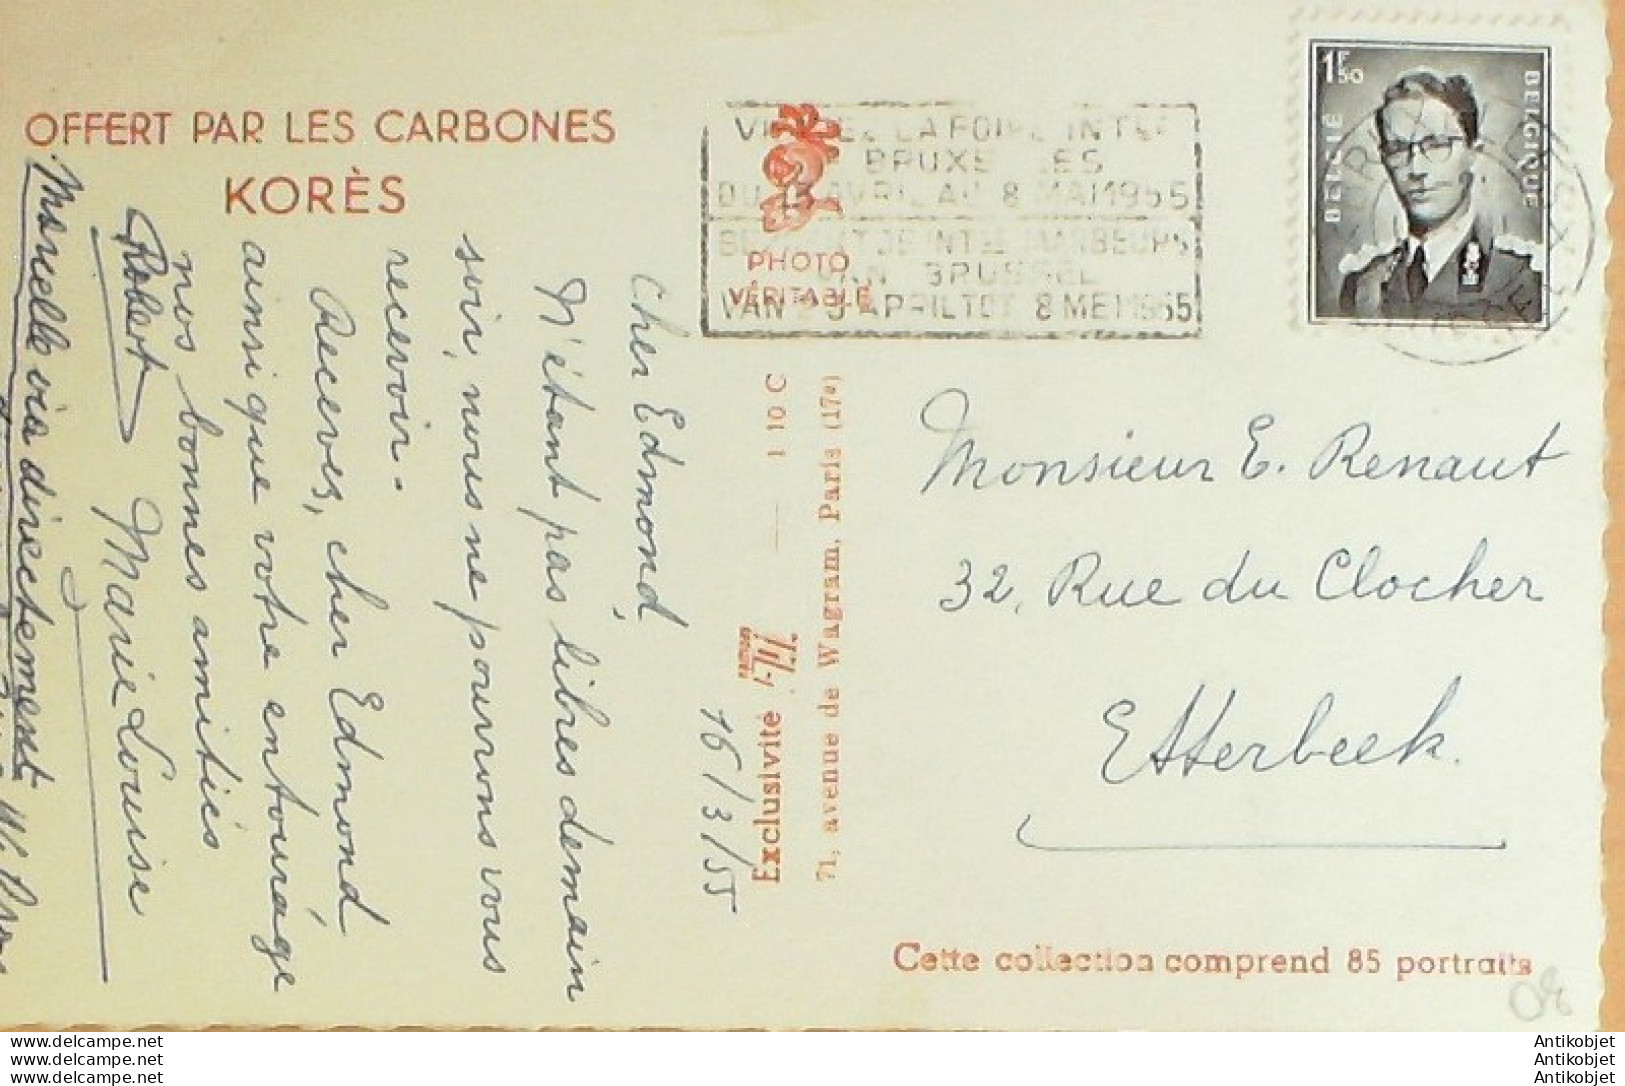 OFFERT PAR LES CARBONES
KORÈS
PHOTO
VÉRITABLE
LA FOIRE INT
BRUXELLES
DU 23 AVRIL AU 8 MAI 1955
VAN BRUSSEL
VAN 23 APRIL TOT 8 MEI 1955
1F50
BELGIË
BELGIQUE
16/3/55
Cher Edmond,
N'étant pas libres demain
soir, nous ne pourrons vous
recevoir.
Recevez, cher Edmond
ainsi que votre entourage
nos bonnes amitiés
Robert Marie Louise
Marcelle ira directement
Exclusivité
71, avenue de Wagram, Paris (17e)
110 C
Monsieur E. Renaut
32, Rue du Clocher
Etterbeek.
Cette collection comprend 85 portraits
Antikobjet
Antikobjet
Antikobjet
www.delcampe.net
www.delcampe.net
www.delcampe.net